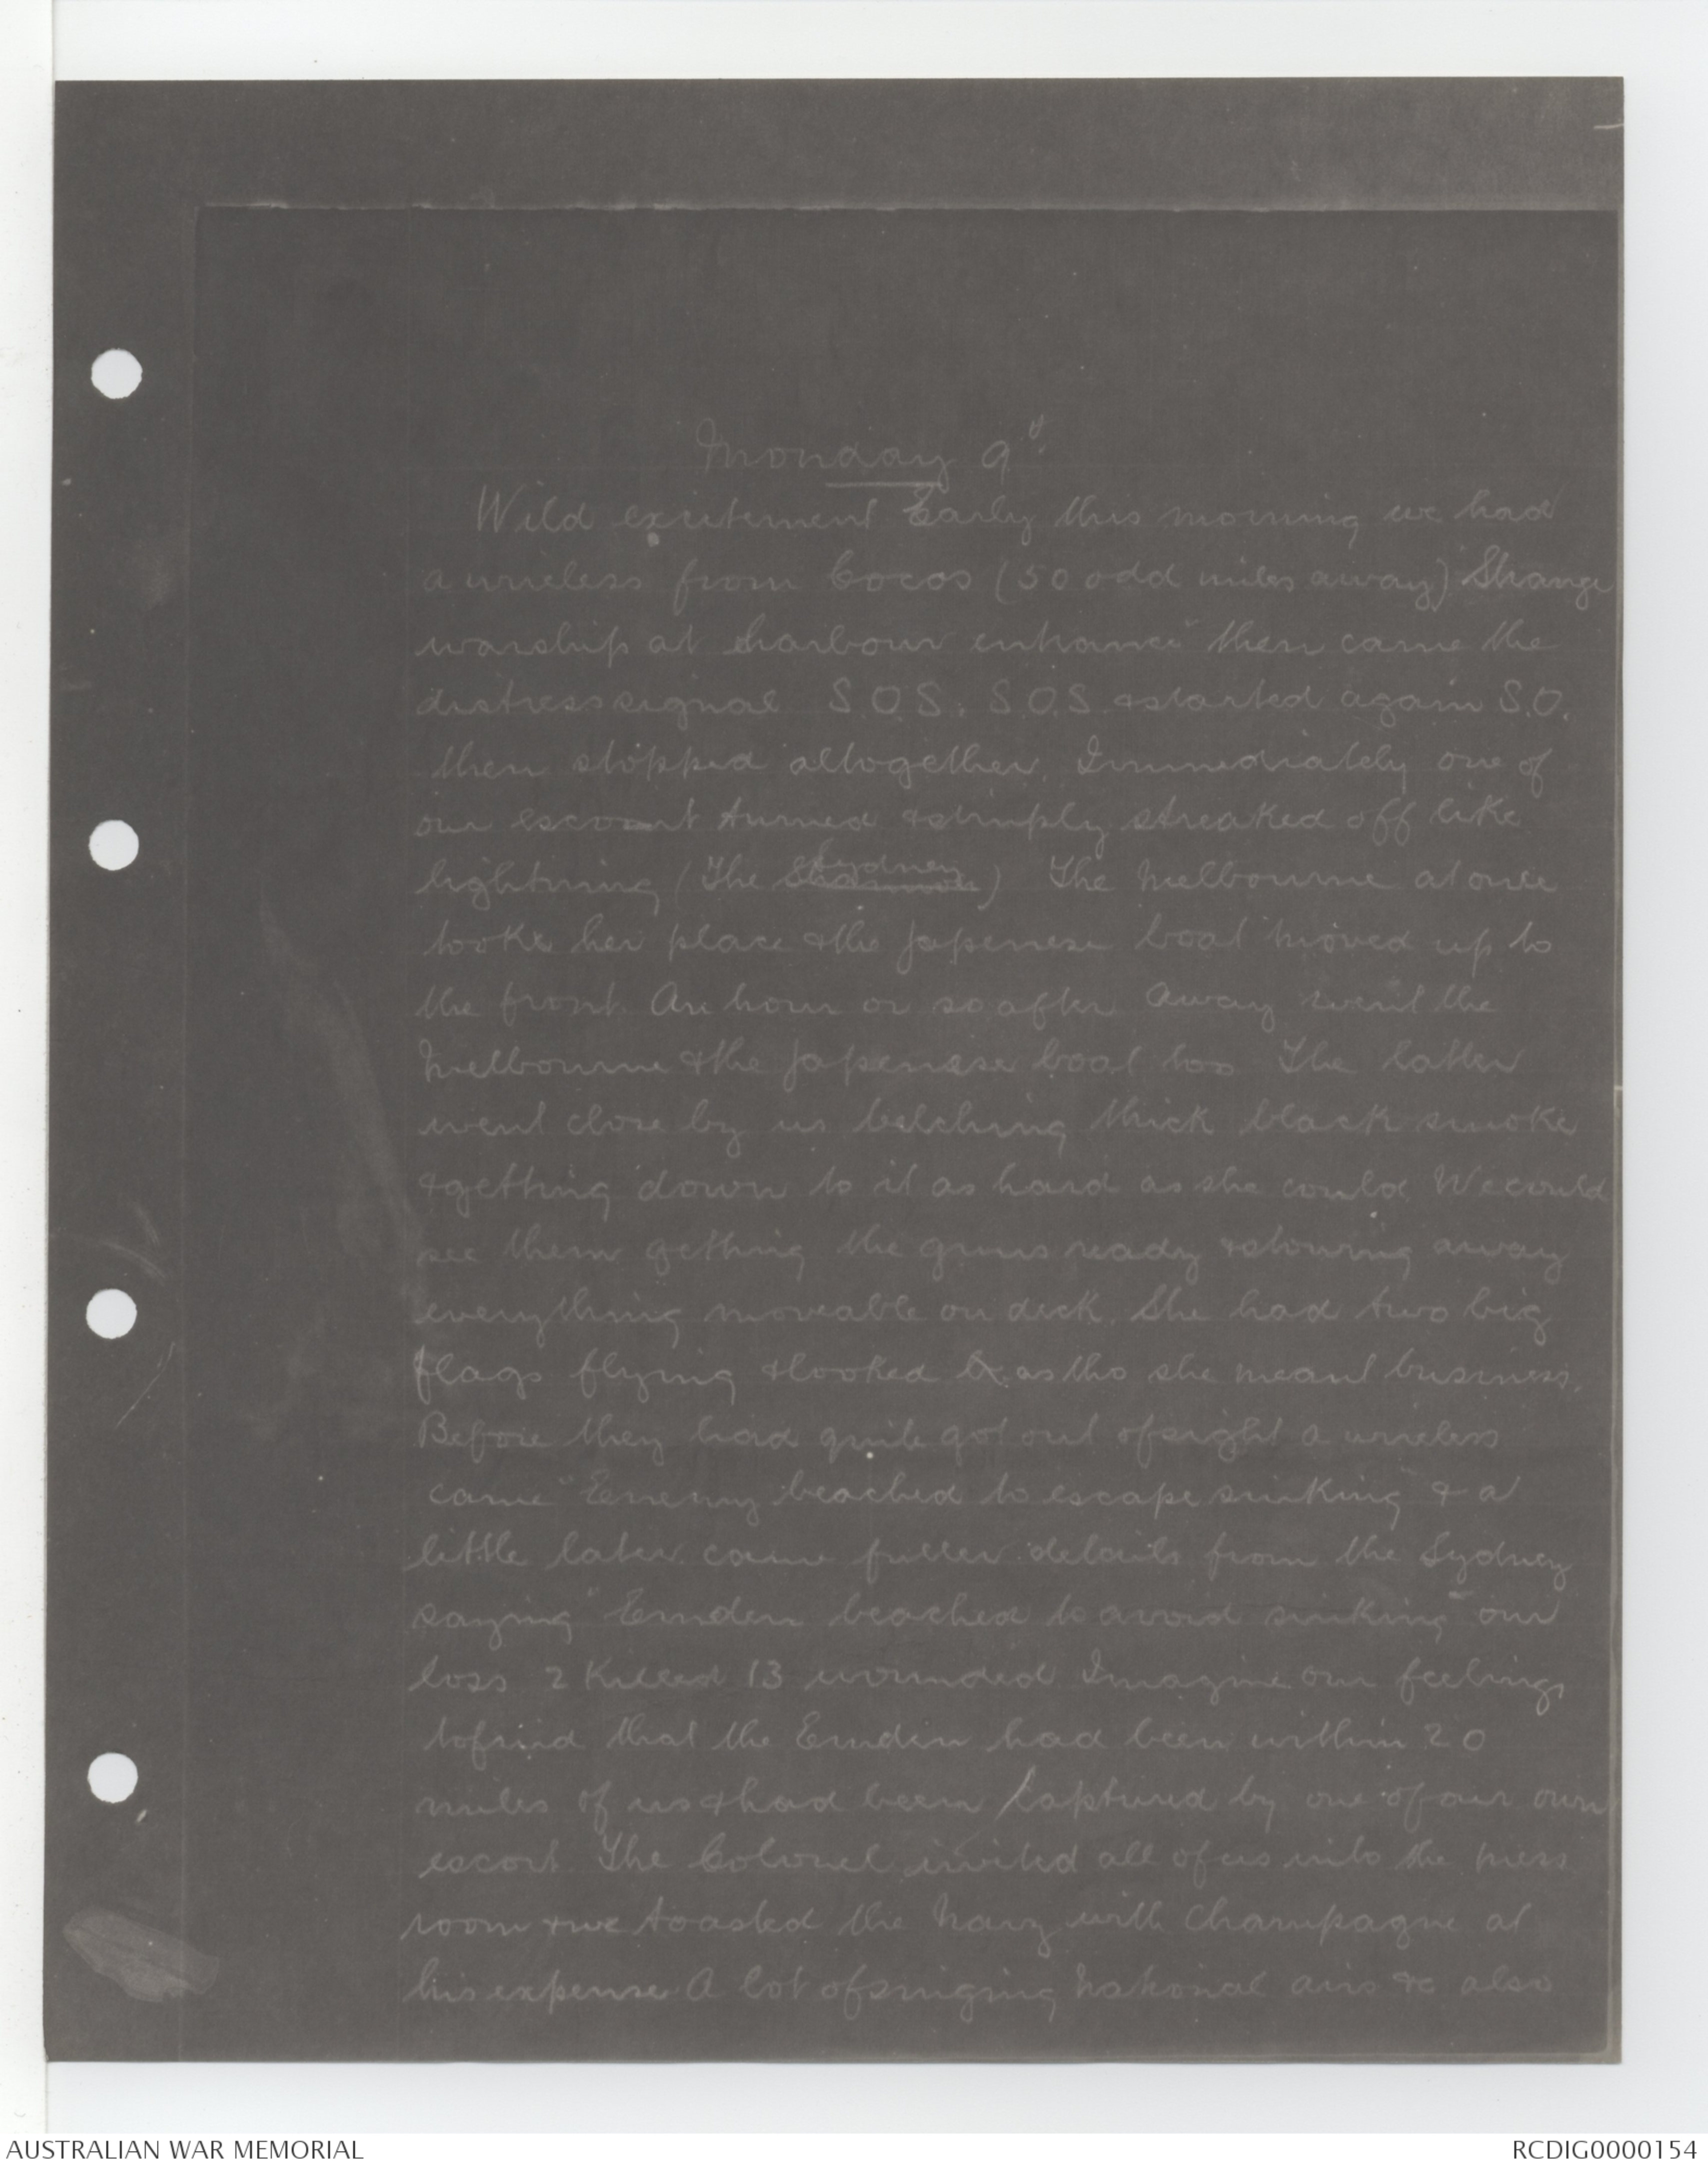 Monday 9"
Wild excitement Early this morning we had
a wireless from Cocos (50 odd miles away) "Strange
warship at harbour entrance" then came the
distress signal S.O.S. S.O.S. & started again S.O.
then stopped altogether. Immediately one of
our escort turned & simply streaked off like
lightning (The Sydney) The Melbourne at once
tooks her place & the Japenese boat moved up to
the front. An hour or so after away went the
Melbourne & the Japenese boat too The latter
went close by us belching thick black smoke
& getting down to it as hard as she could. We could
see them getting the guns ready & stowing away
everything moveable on deck. She had two big
flags flying & looked as tho she meant business.
Before they had quite got out of sight a wireless
came "Enemy beached to escape sinking" & a
little later came fuller details from the Sydney
saying "Emden beached to avoid sinking" our
loss 2 Killed 13 wounded Imagine our feelings
to find that the Emden had been within 20
miles of us & had been captured by one of our own
escort. The Colonel invited all of us into the mess
room & we toasted the Navy with Champagne at
his expense. A lot of singing National airs &c also
AUSTRALIAN WAR MEMORIAL
RCDIG0000154